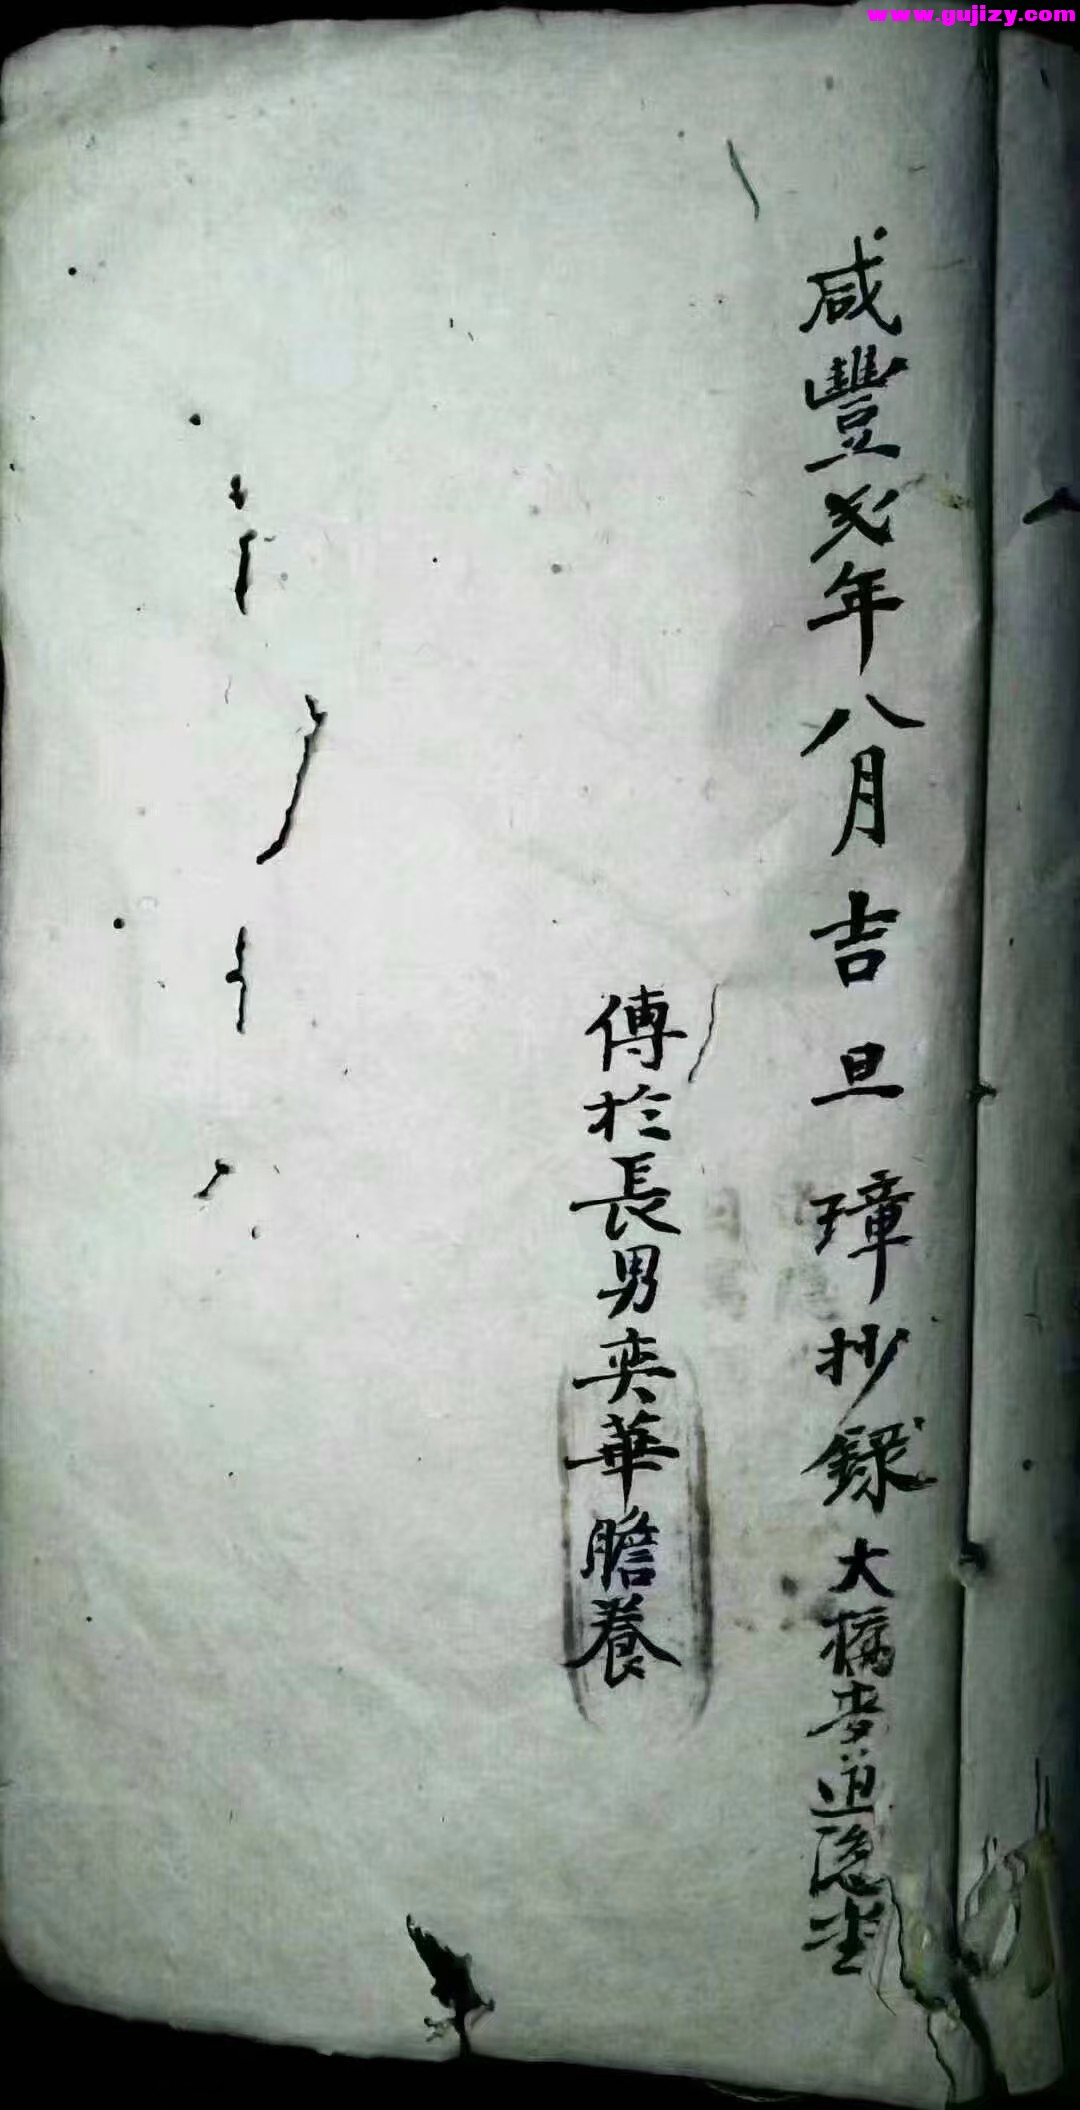 www.gujizy.com
咸豐弍年八月吉旦璋抄錄大橋麥道隐坐
傳於長男奕華膽養